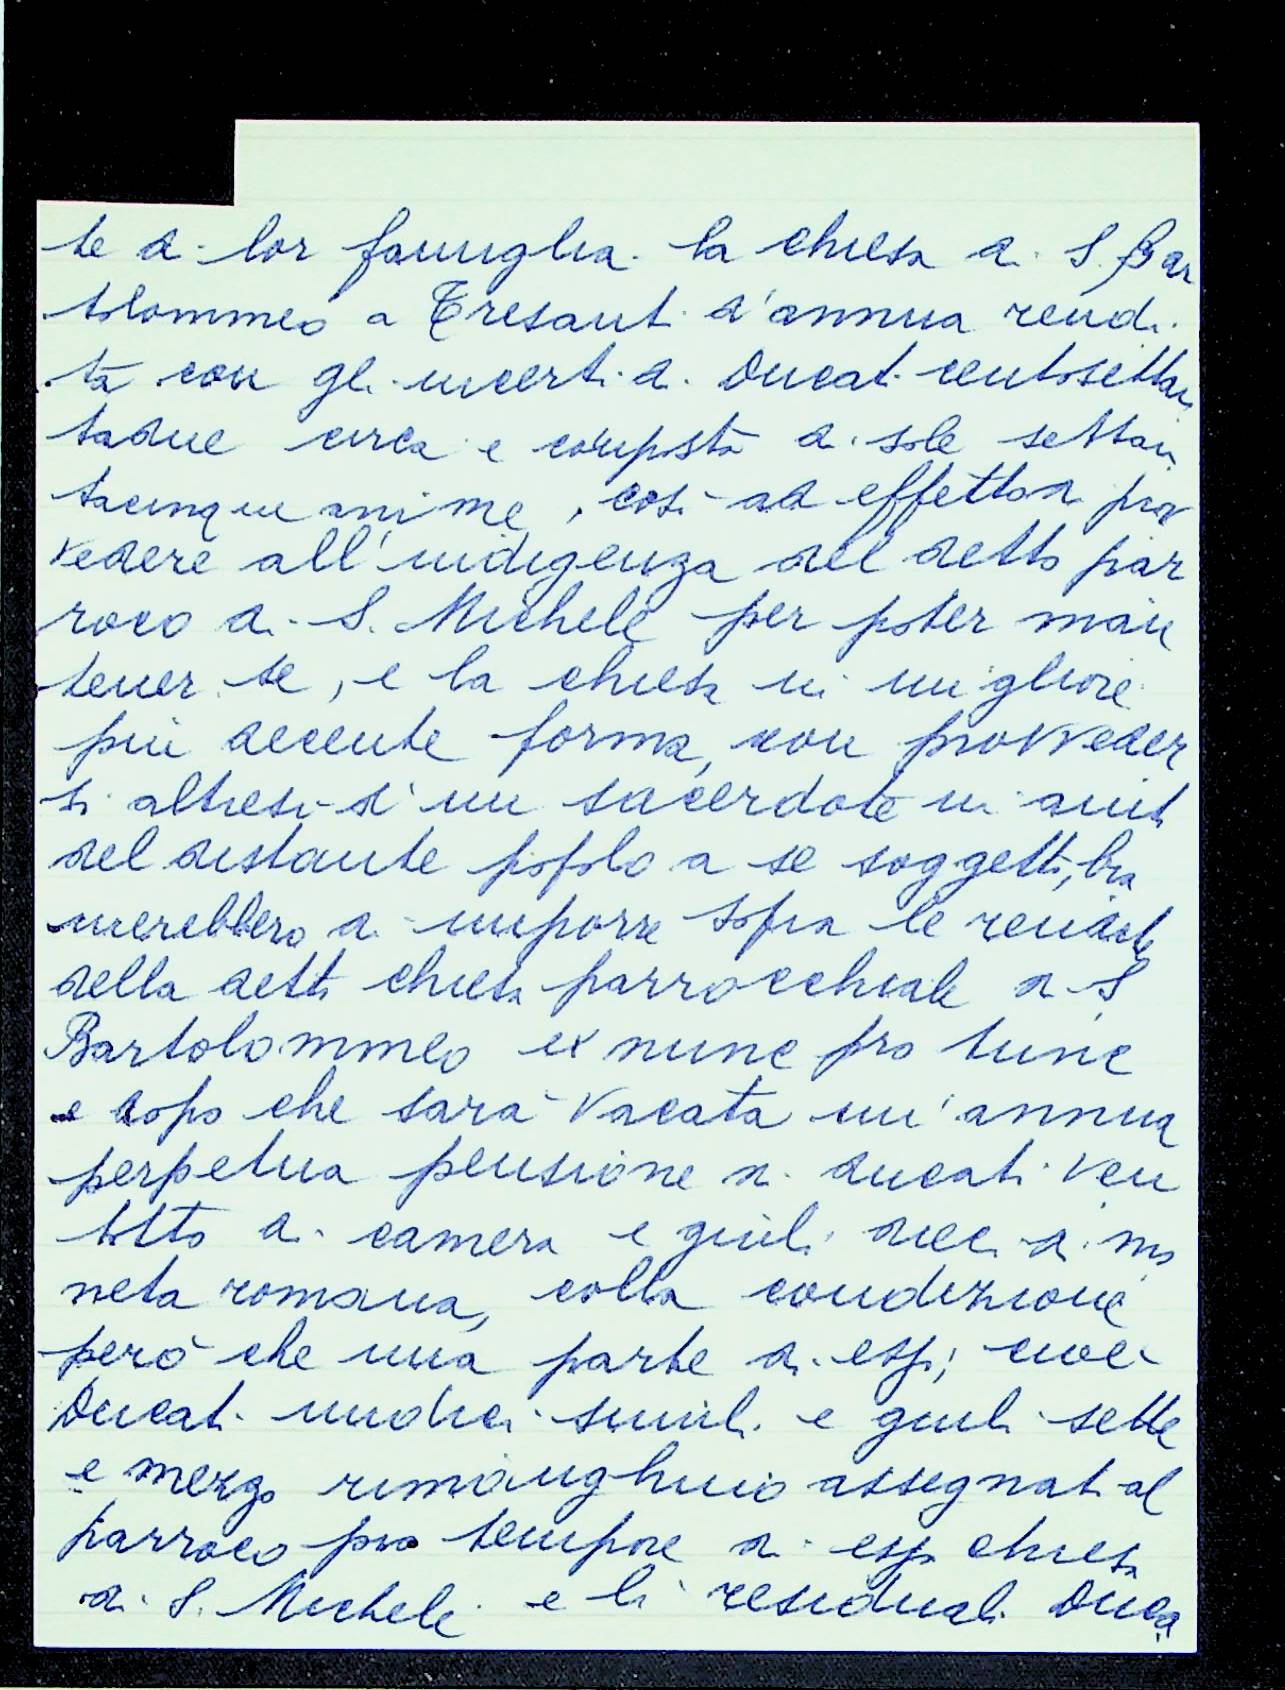 te di lor famiglia la chiesa di S. Bar
tolommeo a Tresanti d'annua rendi
ta con gl'incerti di Ducati centosettan
tadue circa e composta di sole settan
tacinque anime, così ad effetto di prov
vedere all'indigenza del detto par
roco di S. Michele per poter man
tener se, e la chiesa in migliore
più decente forma, con provveder
si altresì d'un sacerdote in aiuto
del distante popolo a se soggetto, bra
merebbero di imporre sopra le rendite
della detta chiesa parrocchiale di S.
Bartolommeo ex nunc pro tunc
e dopo che sarà vacata un'annua
perpetua pensione di ducati ven
totto di camera e giuli dieci di mo
neta romana, colla condizione
però che una parte di essi, cioè
Ducati undici simili e giuli sette
e mezzo rimanghino assegnati al
parroco pro tempore di essa chiesa
di S. Michele e li residuali Duca